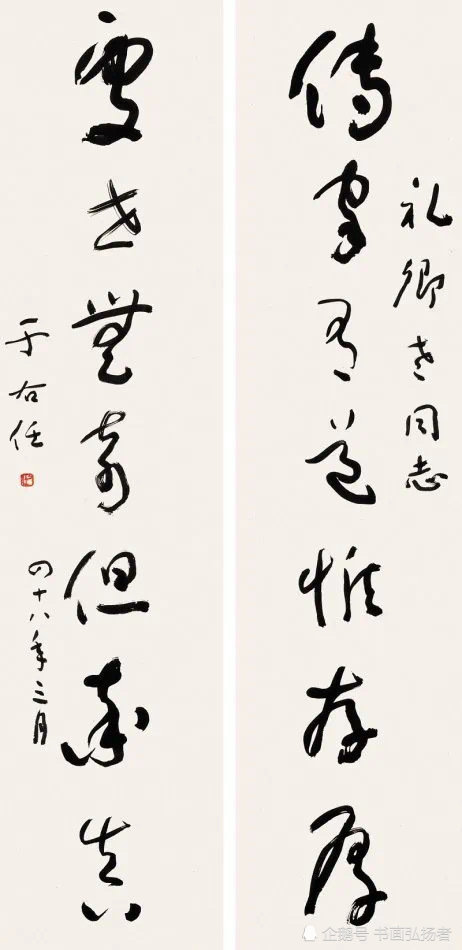 礼卿老同志
傳家有道惟存厚
處世無奇但率真
四十八年三月
于右任
企鹅号 书画弘扬者